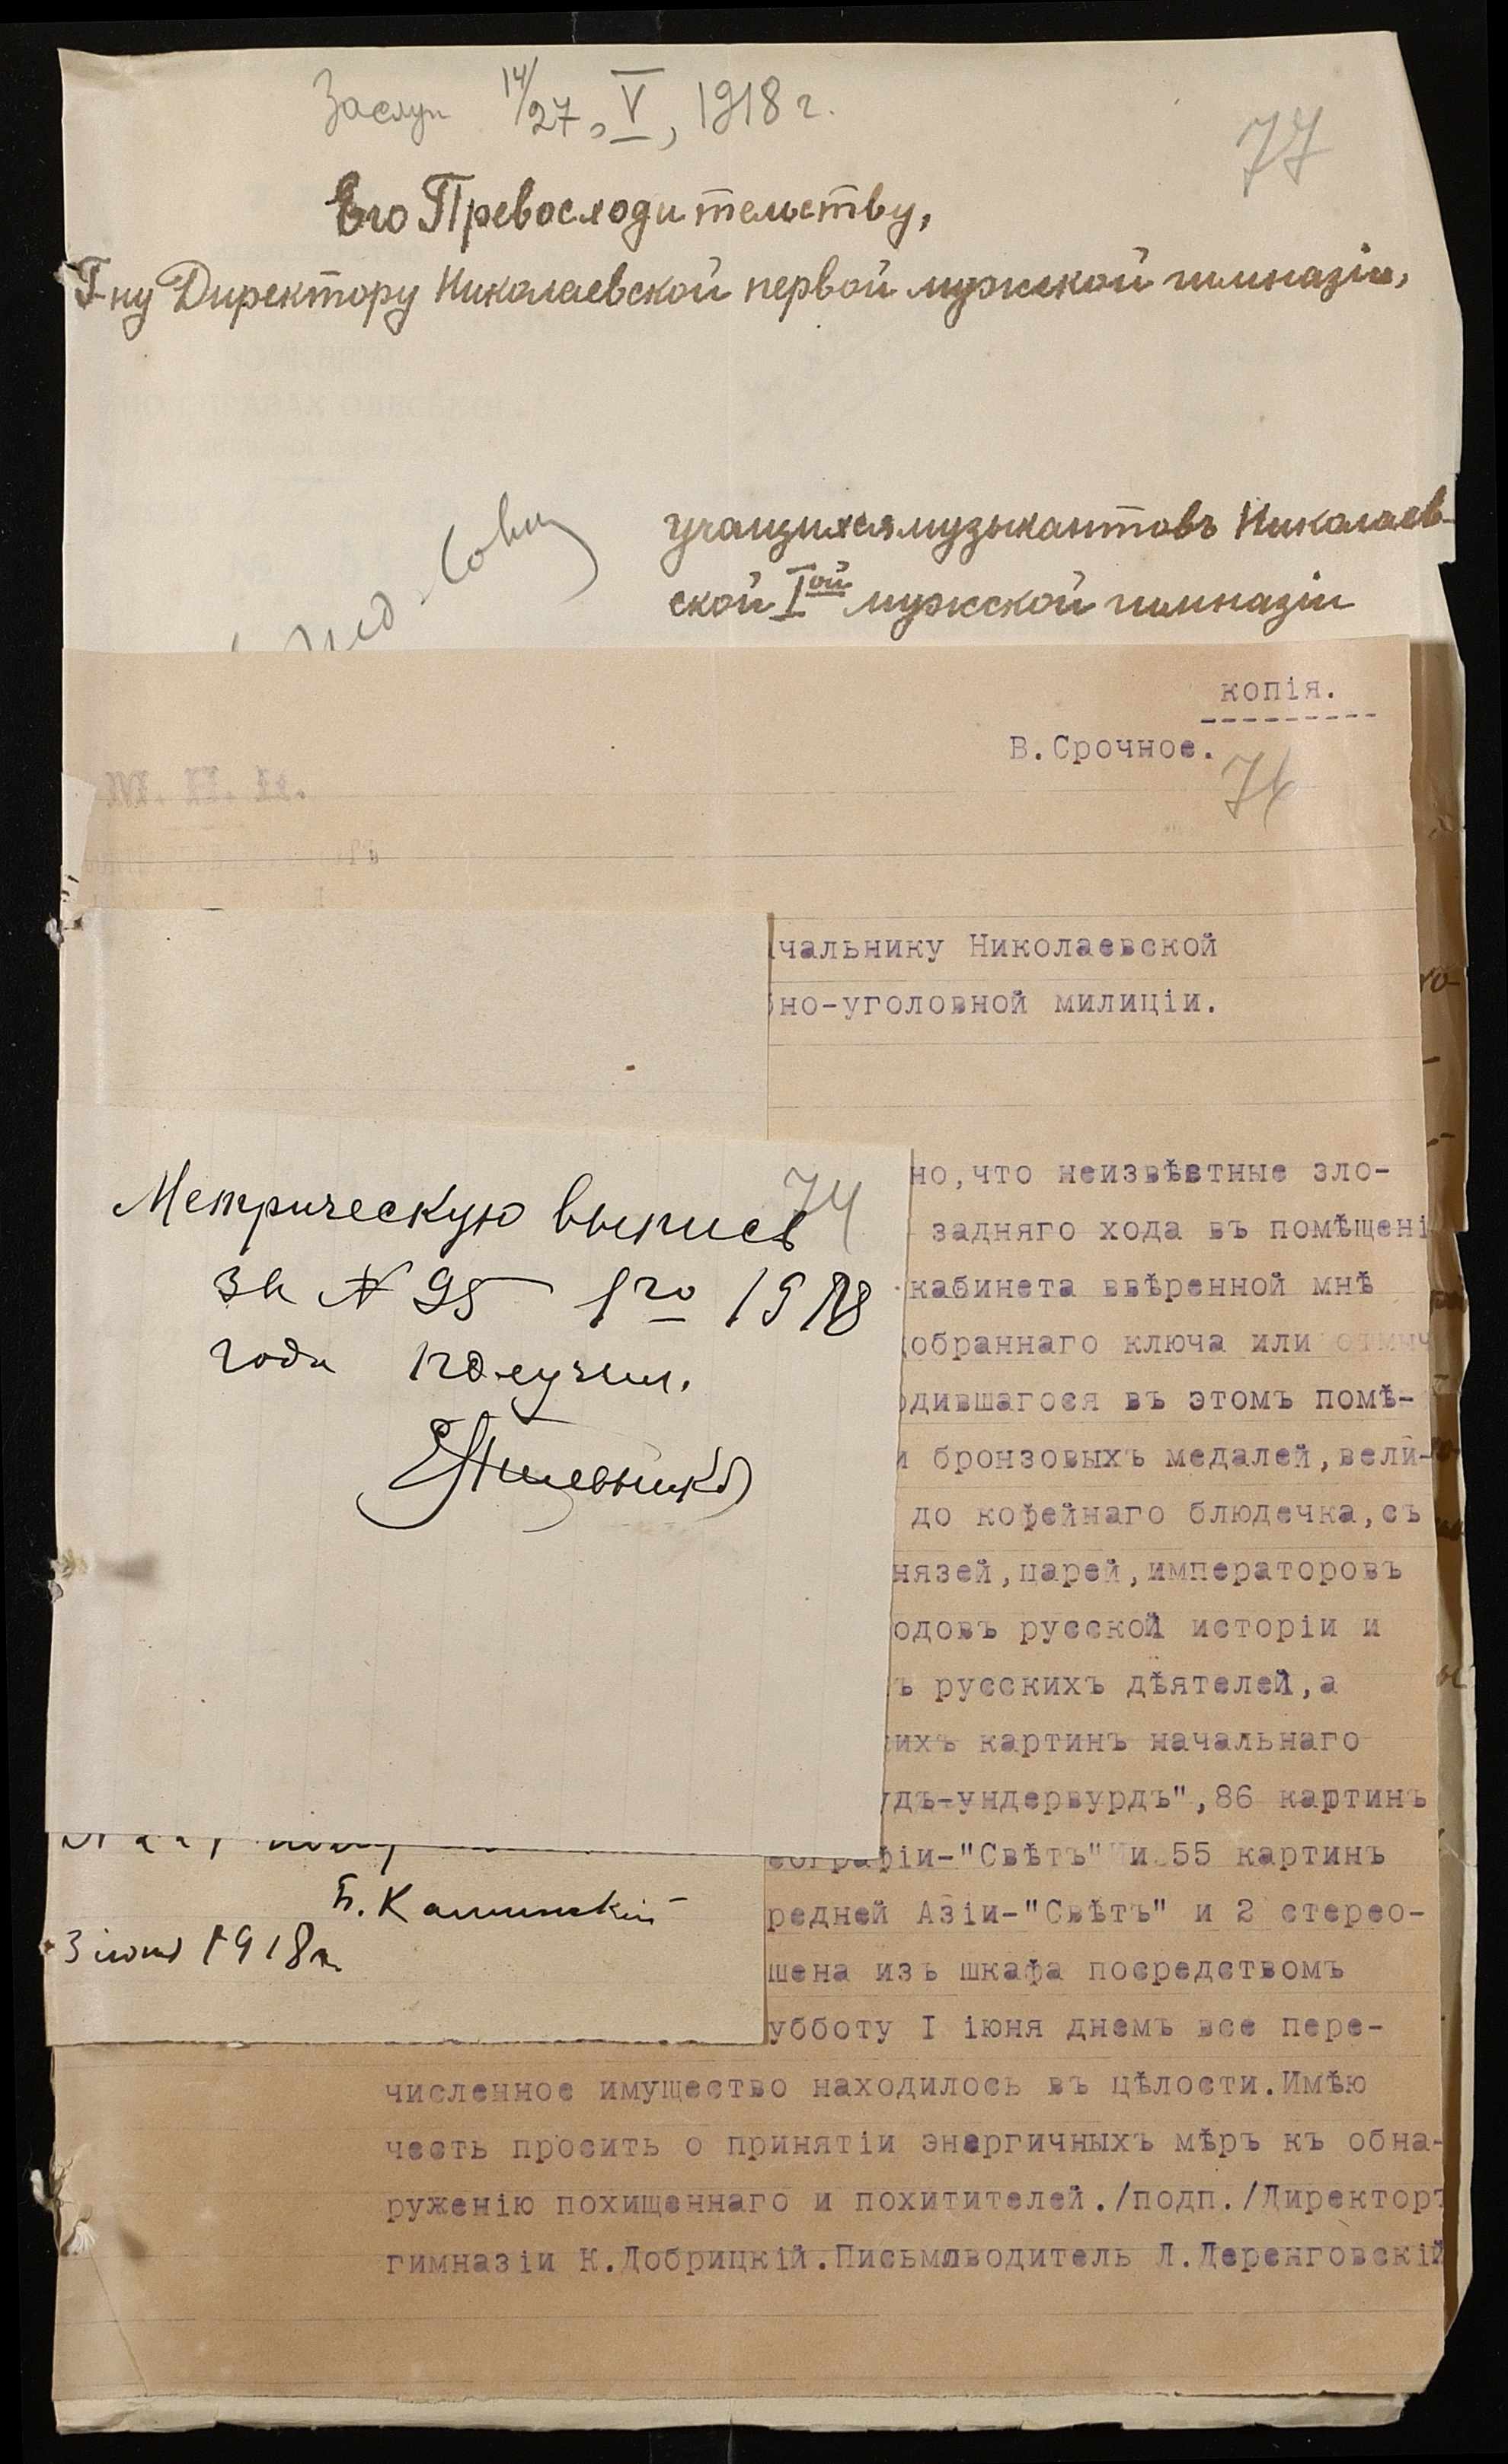 Заслуш 14/27, V, 1918 г.
77
Его Превосходительству,
Г-ну Директору Николаевской первой мужской гимназіи,
учащихся музыкантовъ Николаев-
ской I ой мужской гимназіи
копія.
В.Срочное.
76
М. Н. П.
чальнику Николаевской
но-уголовной милиціи.
но,что неизвѣстные зло-
задняго хода въ помѣщені
кабинета ввѣренной мнѣ
обраннаго ключа или отмыч
дившагося въ этомъ помѣ-
и бронзовыхъ медалей,вели-
до кофейнаго блюдечка,съ
нязей,царей,императоровъ
одовъ русской исторіи и
ъ русскихъ дѣятелей,а
ихъ картинъ начальнаго
удъ-ундервурдъ",86 картинъ
еографіи-"Свѣтъ" и 55 картинъ
редней Азіи-"Свѣтъ" и 2 стерео-
шена изъ шкафа посредствомъ
убботу I іюня днемъ все пере-
численное имущество находилось въ цѣлости.Имѣю
честь просить о принятіи энергичныхъ мѣръ къ обна-
руженію похищеннаго и похитителей./подп./Директоръ
гимназіи К.Добрицкій.Письмоводитель Л.Деренговскій
74
Метрическую выпись
за № 95 1го 1918
года получил.
3 іюня 1918 г.